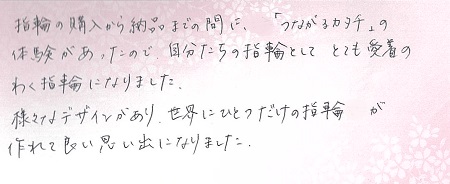 指輪の購入から納品までの間に、「つながるカタチ」の
体験があったので、自分たちの指輪として とても愛着の
わく指輪になりました。
様々なデザインがあり、世界にひとつだけの指輪 が
作れて良い思い出になりました。